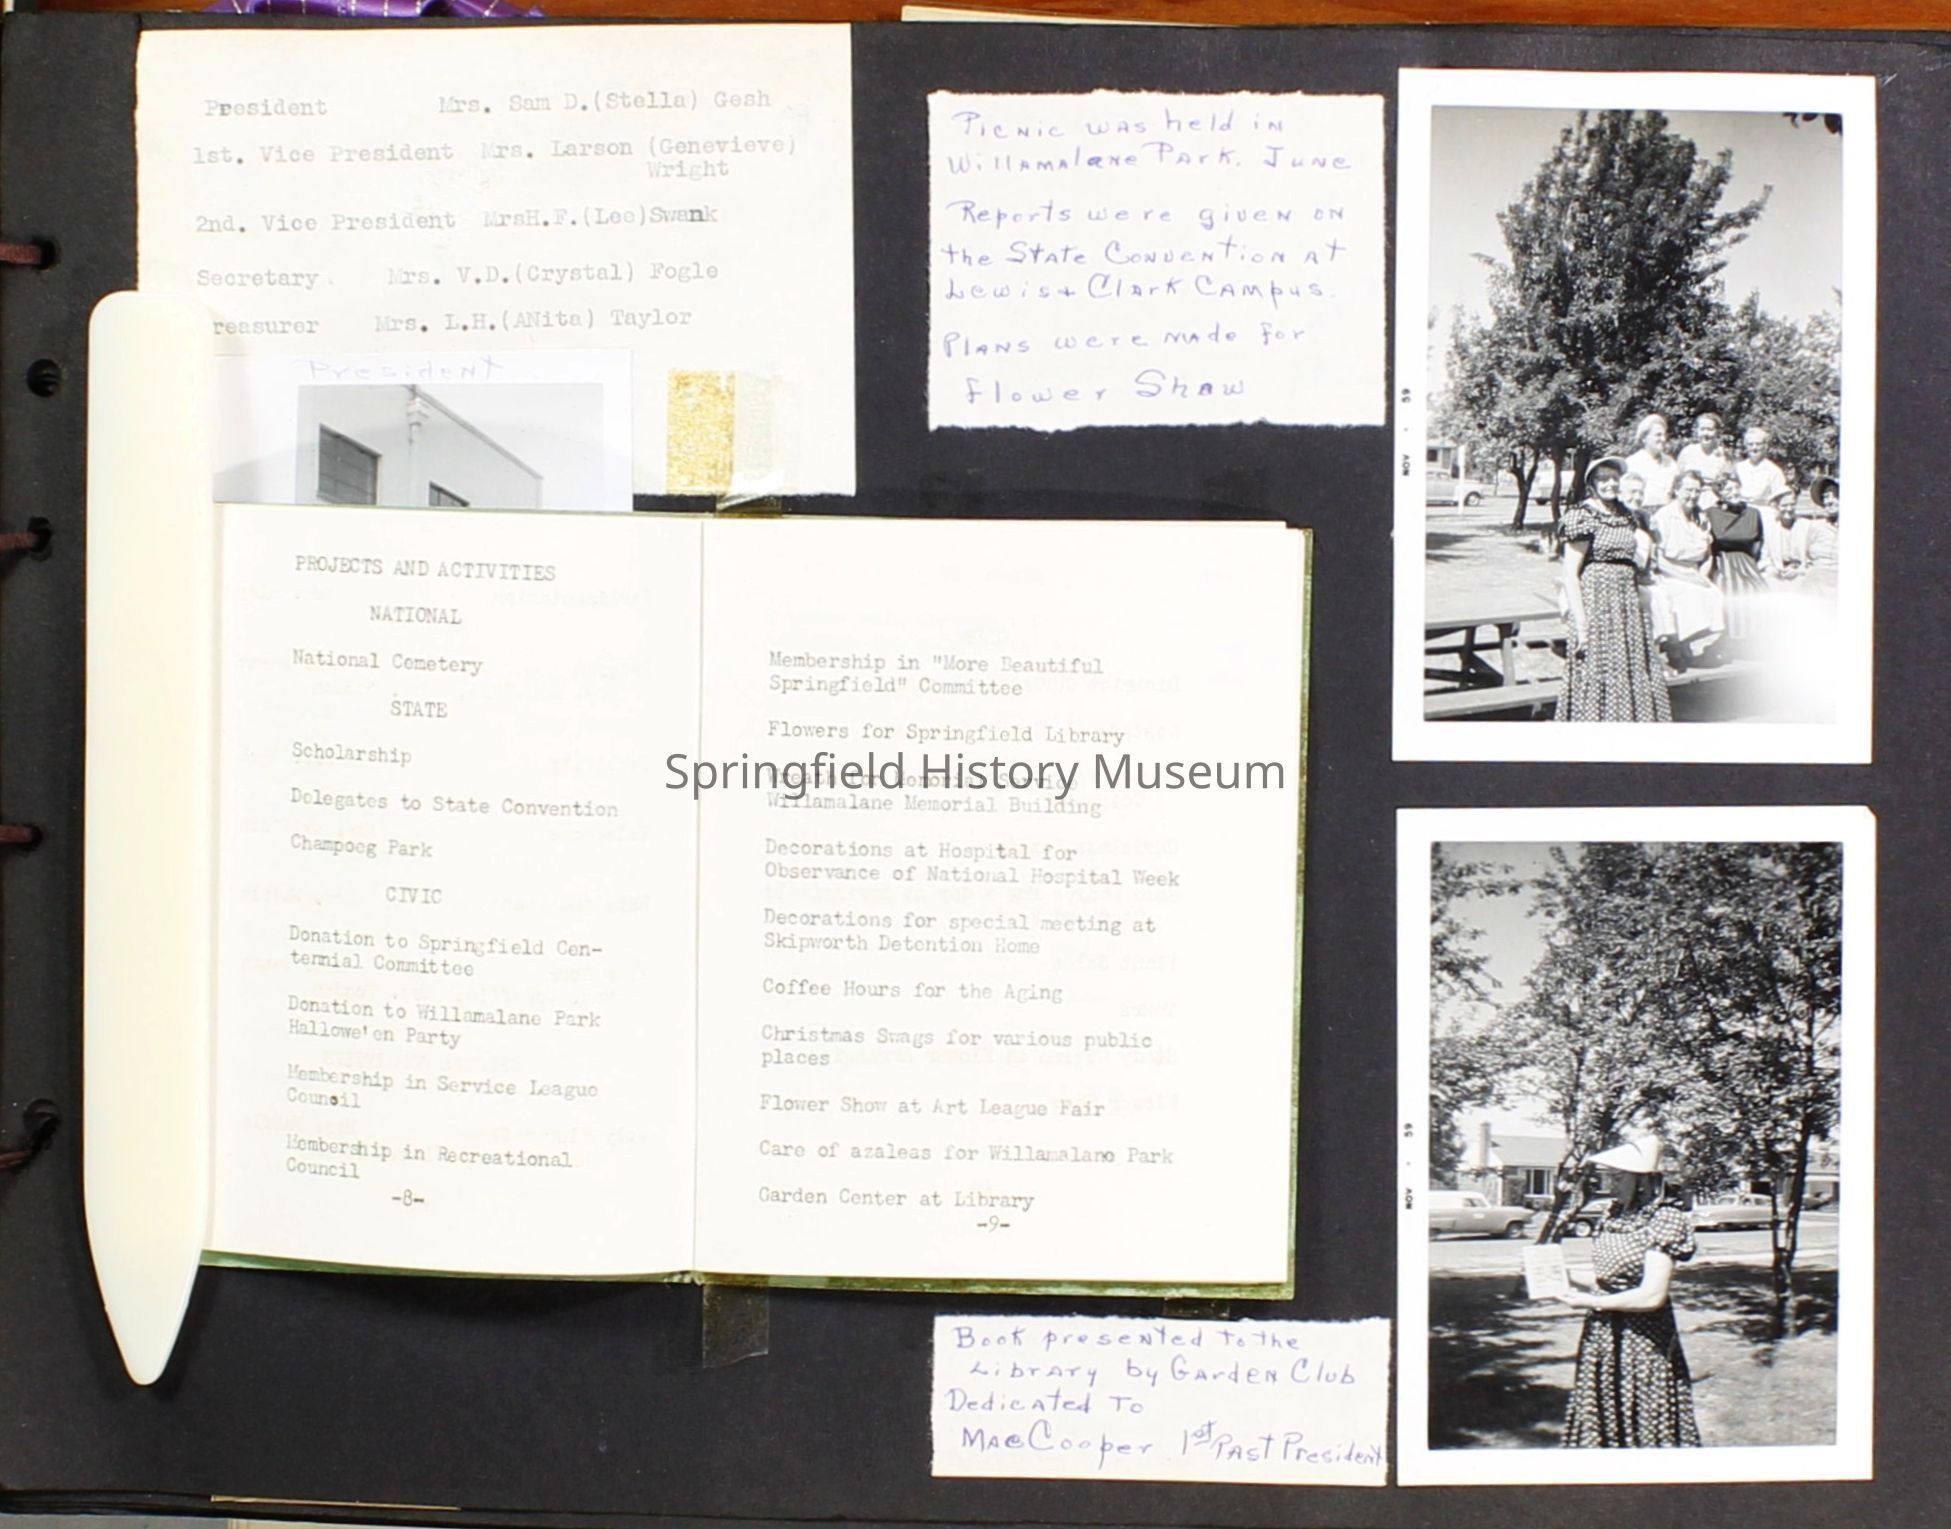 President Mrs. Sam D.(Stella) Gesh
1st. Vice President Mrs. Larson (Genevieve)
Wright
2nd. Vice President MrsH.F.(Lee)Swank
Secretary. Mrs. V.D.(Crystal) Fogle
reasurer Mrs. L.H.(ANita) Taylor
President
PROJECTS AND ACTIVITIES
NATIONAL
National Cemetery
STATE
Scholarship
Delegates to State Convention
Champoeg Park
CIVIC
Donation to Springfield Cen-
tennial Committee
Donation to Willamalane Park
Hallowe'en Party
Membership in Service League
Council
Membership in Recreational
Council
-8-
Membership in "More Beautiful
Springfield" Committee
Flowers for Springfield Library
Wreath for Memorial Service
Willamalane Memorial Building
Decorations at Hospital for
Observance of National Hospital Week
Decorations for special meeting at
Skipworth Detention Home
Coffee Hours for the Aging
Christmas Swags for various public
places
Flower Show at Art League Fair
Care of azaleas for Willamalane Park
Garden Center at Library
-9-
Springfield History Museum
Picnic was held in
Willamalane Park. June
Reports were given on
the State Convention at
Lewis + Clark Campus.
Plans were made for
Flower Show
Book presented to the
Library by Garden Club
Dedicated To
Mae Cooper 1st Past President
NOV . 59
NOV . 59